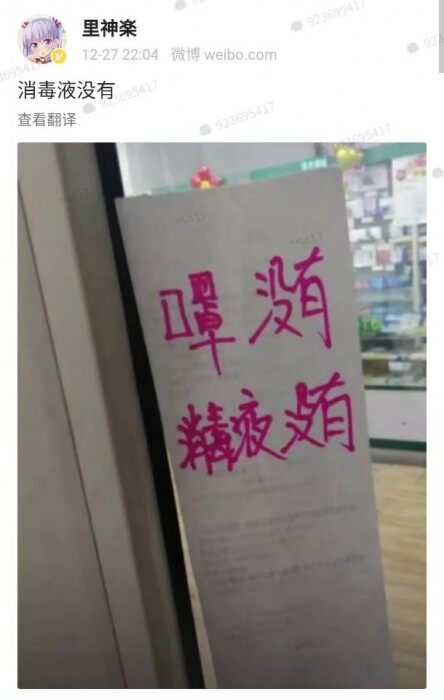 里神楽
12-27 22:04 微博 weibo.com
消毒液没有
查看翻译
口罩没有
消毒液没有
923695417